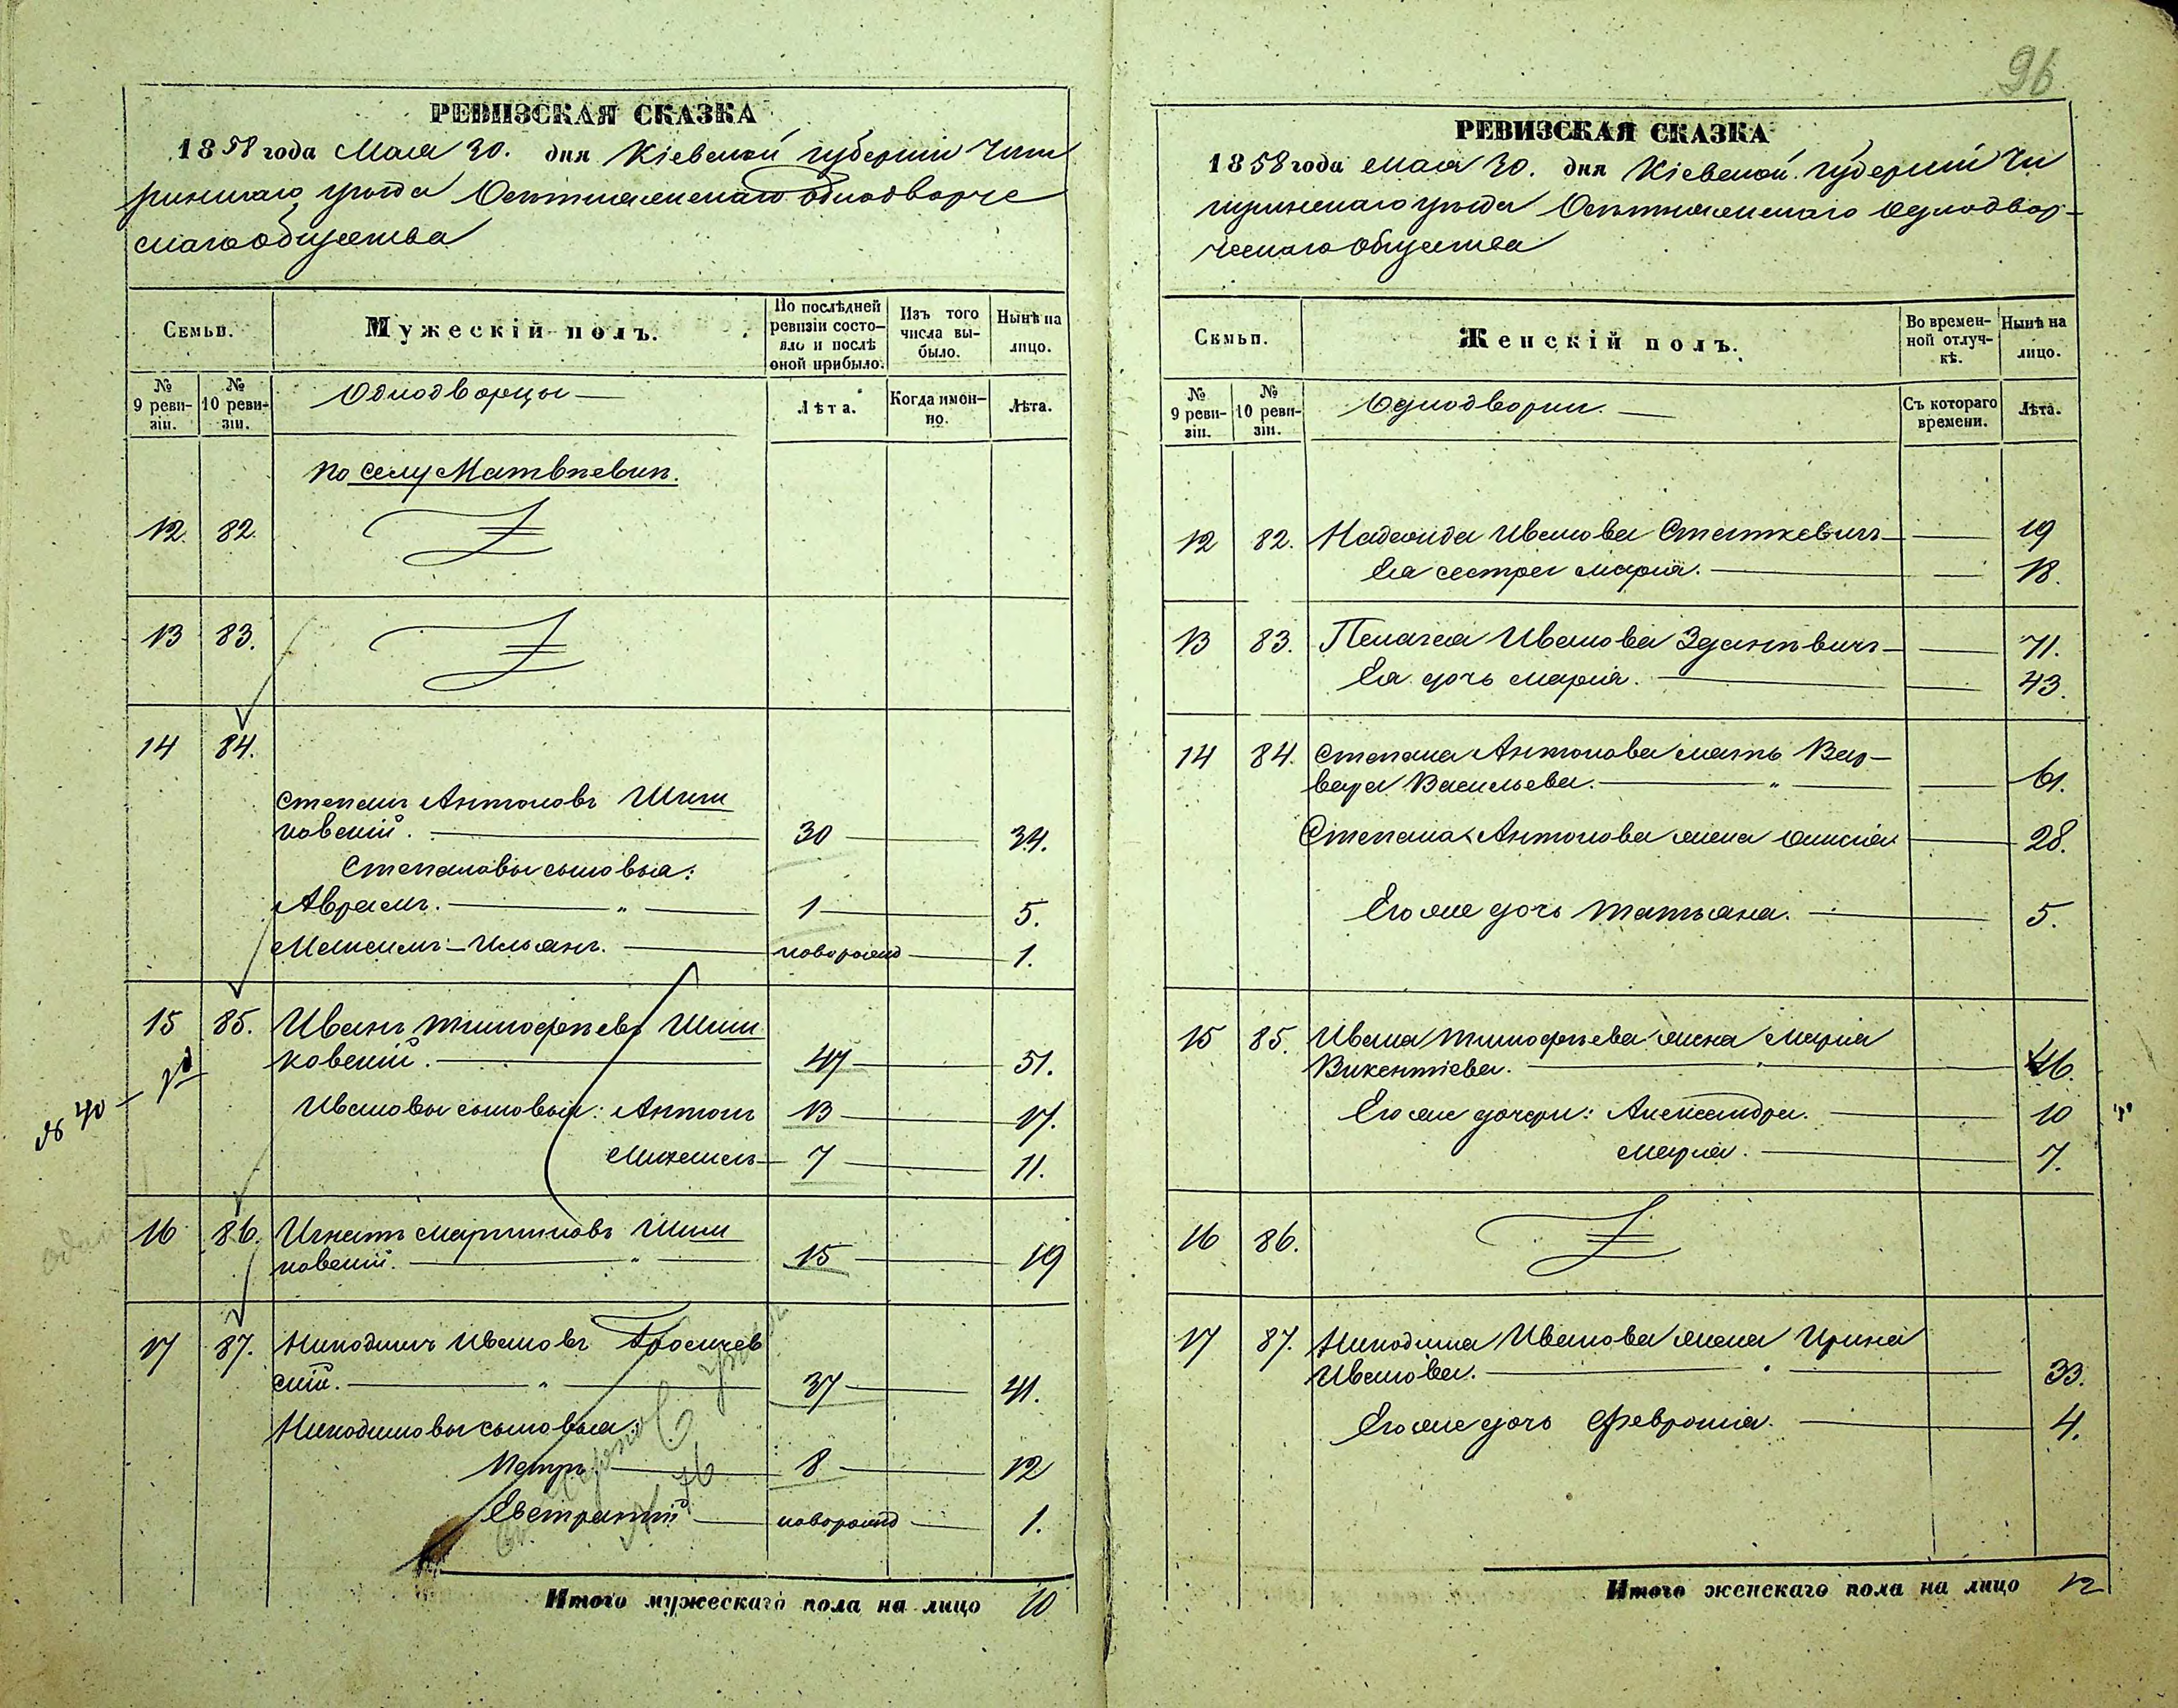 96
РЕВИЗСКАЯ СКАЗКА
1858 года Мая 30. дня Кіевской губерніи Чиги
ринскаго уѣзда Осытняжскаго однодворче
скаго общества
Семьи.
Мужескій полъ.
По послѣдней ревизіи состо-
яло и послѣ оной прибыло.
Изъ того числа вы-
было.
Нынѣ на лицо.
№ 9 реви-
зіи.
№ 10 реви-
зіи.
Однодворцы
Лѣта.
Когда имен-
но.
Лѣта.
по селу Матвѣевки.
12. 82.
13 83.
14 84.
Степанъ Антоновъ Шиш
ковскій. 30 34.
Степановы сыновья:
Аврамъ. " 1 5.
Максимъ-Ильянъ. новорожд 1.
15 85. Иванъ Тимофѣевъ Шиш
ковскій. 47 51.
Ивановы сыновья: Антонъ 13 17.
Михаилъ 7 11.
16 86. Игнатъ Мартиновъ Шиш
ковскій. " 15 19
17 87. Никодимъ Ивановъ
скій. " 37 41.
Никодимовы сыновья:
Петръ. 8 12
Евстратій новорожд 1.
Итого мужескаго пола на лицо 10
РЕВИЗСКАЯ СКАЗКА
1858 года мая 30. дня Кіевской губерніи Чи
гиринскаго уѣзда Осытняжскаго однодвор-
ческаго общества
Семьи.
Женскій полъ.
Во времен-
ной отлуч-
кѣ.
Нынѣ на лицо.
№ 9 реви-
зіи.
№ 10 реви-
зіи.
Однодворки.
Съ котораго времени.
Лѣта.
12 82. Надежда Иванова Статкевичъ 19
Ея сестра Марія. 18.
13 83. Пелагея Иванова 71.
Ея дочь Марія. 43.
14 84. Степана Антонова мать Вар-
вара Васильева. " 61.
Степана Антонова жена 28.
Его же дочь Татьяна. 5.
15 85. Ивана Тимофѣева жена Марія
Викентіева. " 46.
Его же дочери: Александра. 10
Марія. 7.
16 86.
17 87. Никодима Иванова жена Ирина
Иванова. 33.
Его же дочь Февронія. 4.
Итого женскаго пола на лицо 12